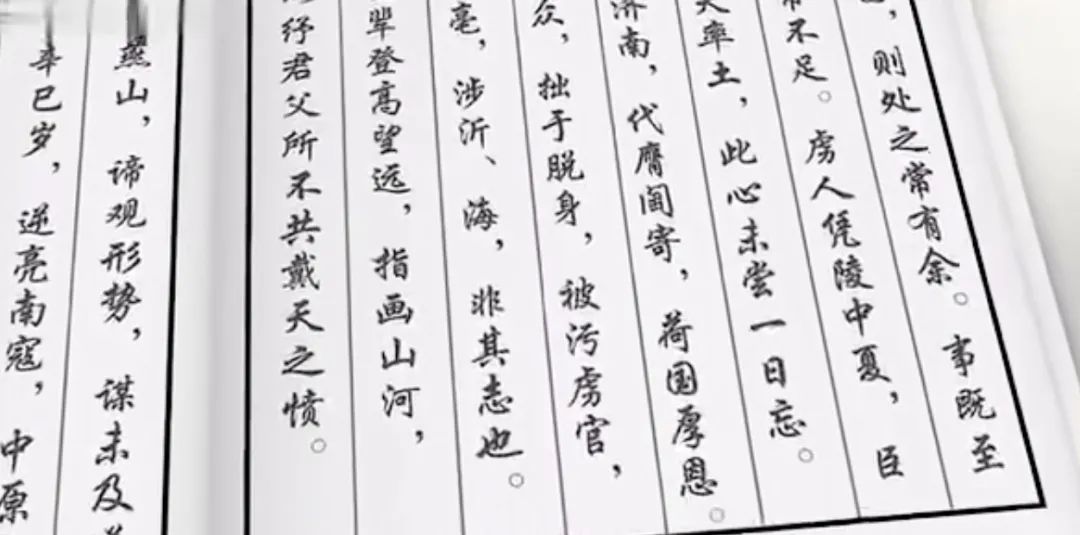 则处之常有余。事既至
不足。虏人凭陵中夏，臣
率土，此心未尝一日忘。
济南，代膺阃寄，荷国厚恩。
众，拙于脱身，被污虏官，
亳，涉沂、海，非其志也。
辈登高望远，指画山河，
纾君父所不共戴天之愤。
燕山，谛观形势，谋未及
辛巳岁，逆亮南寇，中原